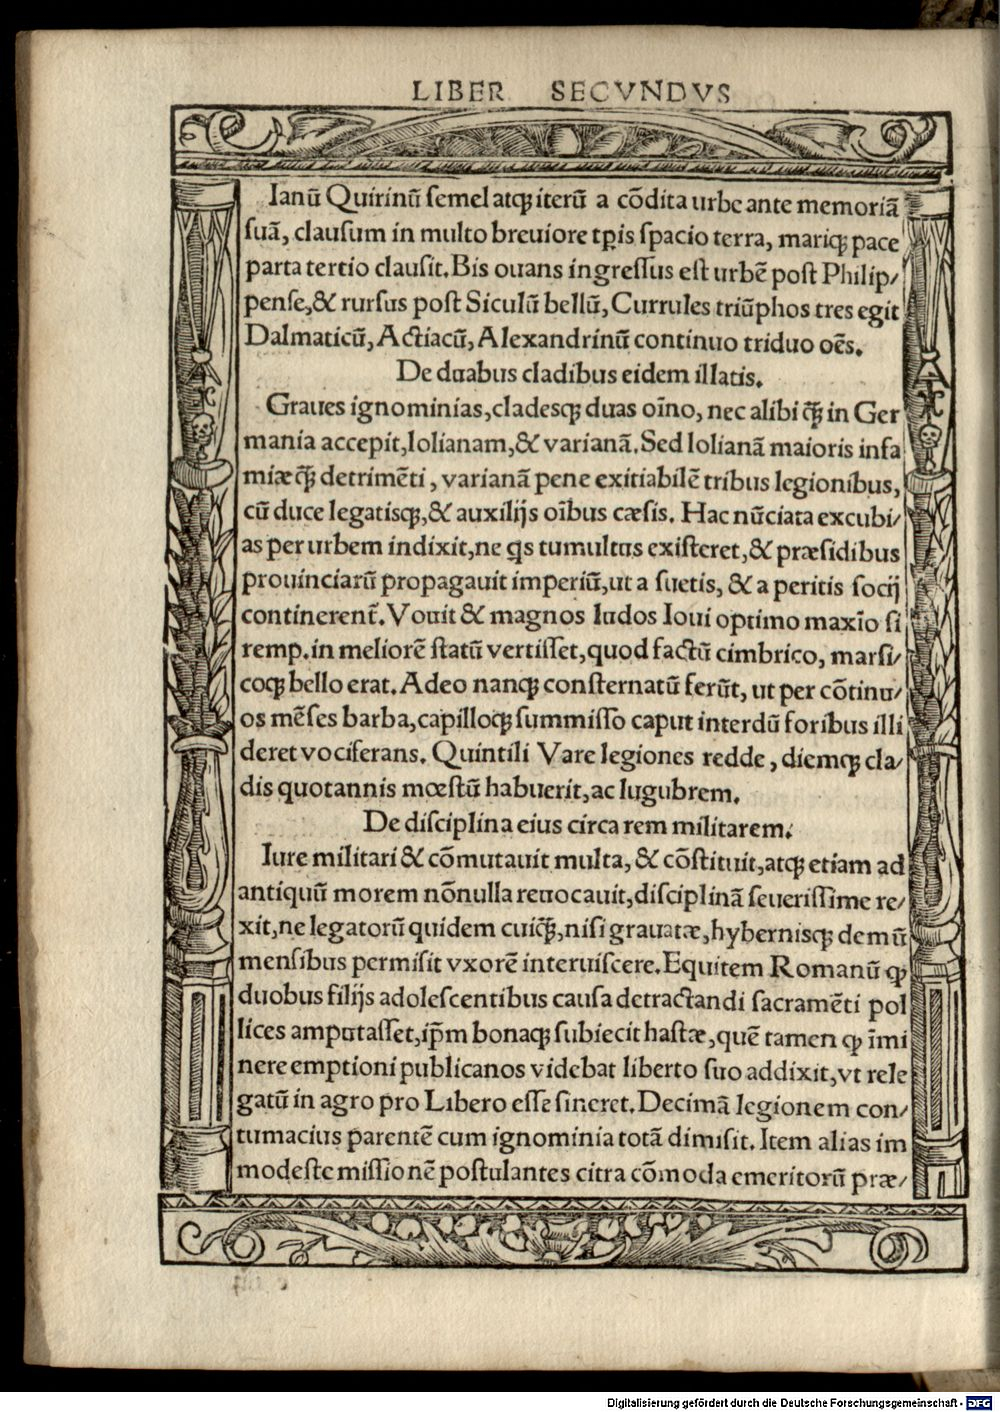 LIBER SECVNDVS
Ianū Quirinū semel atqꝫ iterū a cōdita urbe ante memoriā
suā, clausum in multo breuiore tꝑis spacio terra, mariqꝫ pace
parta tertio clausit. Bis ouans ingressus est urbē post Philip/
pense, & rursus post Siculū bellū, Currules triūphos tres egit
Dalmaticū, Actiacū, Alexandrinū continuo triduo oēs.
De duabus cladibus eidem illatis.
Graues ignominias, cladesqꝫ duas oīno, nec alibi q̄ꝫ in Ger
mania accepit, lolianam, & varianā. Sed lolianā maioris infa
miæ q̄ꝫ detrimēti, varianā pene exitiabilē tribus legionibus,
cū duce legatisqꝫ, & auxilijs oībus cæsis. Hac nūciata excubi/
as per urbem indixit, ne qs tumultus existeret, & præsidibus
prouinciarū propagauit imperiū, ut a suetis, & a peritis socij
continerent̄. Vouit & magnos ludos Ioui optimo maxīo si
remp. in meliorē statū vertisset, quod factū cimbrico, marsi/
coqꝫ bello erat. Adeo nanqꝫ consternatū ferūt, ut per cōtinu/
os mēses barba, capilloqꝫ summisso caput interdū foribus illi
deret vociferans. Quintili Vare legiones redde, diemqꝫ cla/
dis quotannis mœstū habuerit, ac lugubrem.
De disciplina eius circa rem militarem.
Iure militari & cōmutauit multa, & cōstituit, atqꝫ etiam ad
antiquū morem nōnulla reuocauit, disciplinā seuerissime re/
xit, ne legatorū quidem cuiq̄ꝫ, nisi grauatæ, hybernisqꝫ demū
mensibus permisit vxorē interuiscere. Equitem Romanū ꝙ
duobus filijs adolescentibus causa detractandi sacramēti pol
lices amputasset, ip̄m bonaqꝫ subiecit hastæ, quē tamen ꝙ īmi
nere emptioni publicanos videbat liberto suo addixit, vt rele
gatū in agro pro Libero esse sineret. Decimā legionem con/
tumacius parentē cum ignominia totā dimisit. Item alias im
modeste missionē postulantes citra cōmoda emeritorū præ/
Digitalisierung gefördert durch die Deutsche Forschungsgemeinschaft - DFG